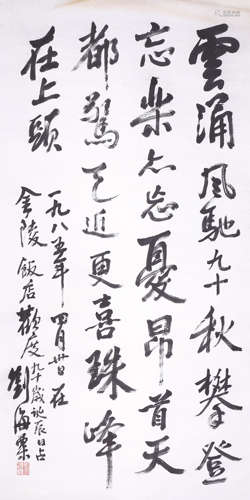 雲涌風馳九十秋攀登
忘樂亦忘憂昂首天
都驚已近更喜珠峰
在上頭
一九八五年四月卅日在
金陵飯店歡度九十歲誕辰日占
劉海粟